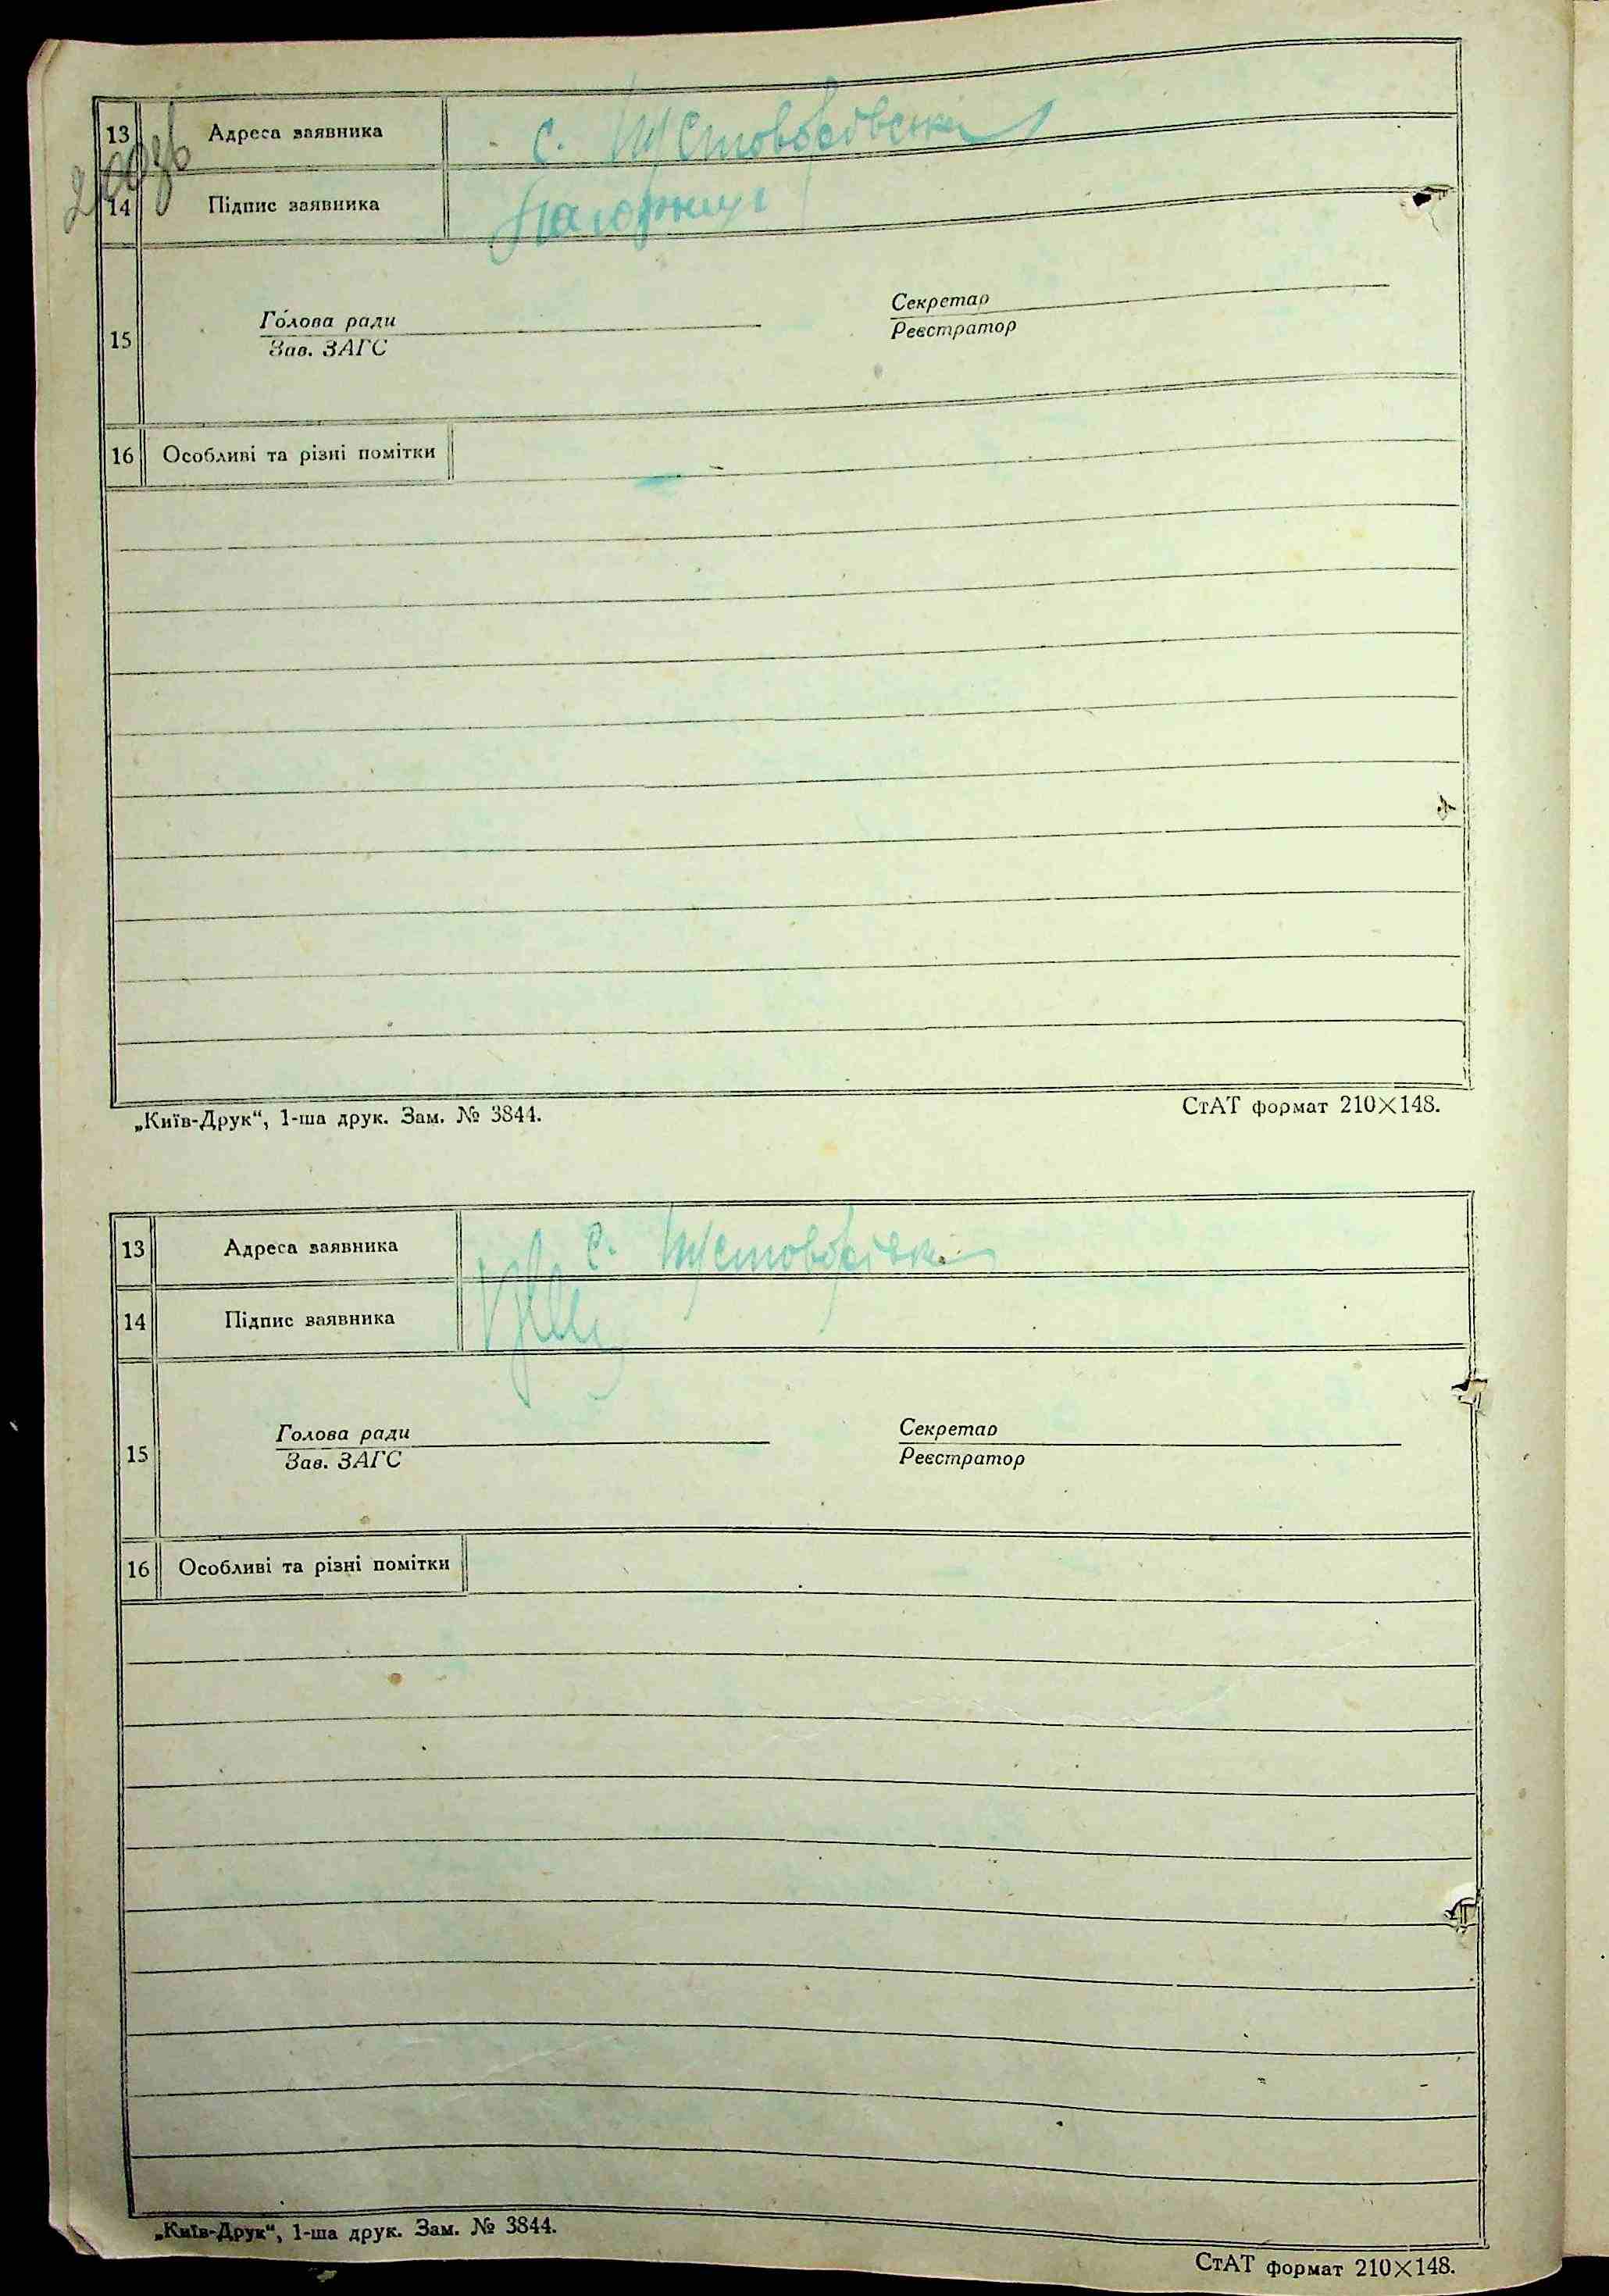 13 Адреса заявника с.
14 Підпис заявника
Голова ради Секретар
15 Зав. ЗАГС Реєстратор
16 Особливі та різні помітки
„Київ-Друк“, 1-ша друк. Зам. № 3844. СтАТ формат 210×148.
13 Адреса заявника с.
14 Підпис заявника
Голова ради Секретар
15 Зав. ЗАГС Реєстратор
16 Особливі та різні помітки
„Київ-Друк“, 1-ша друк. Зам. № 3844.
СтАТ формат 210×148.